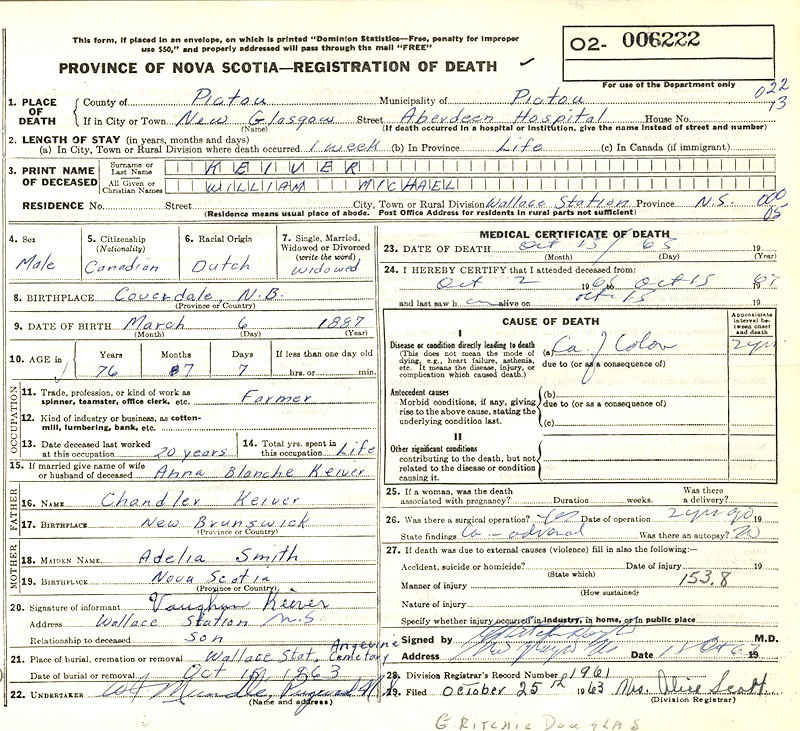 This form, if placed in an envelope, on which is printed "Dominion Statistics—Free, penalty for improper
use $50," and properly addressed will pass through the mail "FREE"
O2- 006222
PROVINCE OF NOVA SCOTIA—REGISTRATION OF DEATH ✓
For use of the Department only
022
13
1. PLACE OF DEATH { County of Pictou Municipality of Pictou
If in City or Town New Glasgow Street Aberdeen Hospital House No.
(Name) (If death occurred in a hospital or institution, give the name instead of street and number)
2. LENGTH OF STAY (in years, months and days)
(a) In City, Town or Rural Division where death occurred 1 week (b) In Province Life (c) In Canada (if immigrant)
3. PRINT NAME OF DECEASED { Surname or Last Name KEIVER
All Given or Christian Names WILLIAM MICHAEL
RESIDENCE No. Street City, Town or Rural Division Wallace Station Province N.S. 000
05
(Residence means usual place of abode. Post Office Address for residents in rural parts not sufficient)
4. Sex Male
5. Citizenship (Nationality) Canadian
6. Racial Origin Dutch
7. Single, Married, Widowed or Divorced (write the word) Widowed
8. BIRTHPLACE Coverdale, N.B.
(Province or Country)
9. DATE OF BIRTH March 6 1887
(Month) (Day) (Year)
10. AGE in Years Months Days If less than one day old
76 7 7 hrs. or min.
OCCUPATION
11. Trade, profession, or kind of work as spinner, teamster, office clerk, etc. Farmer
12. Kind of industry or business, as cotton-mill, lumbering, bank, etc.
13. Date deceased last worked at this occupation 20 years 14. Total yrs. spent in this occupation Life
15. If married give name of wife or husband of deceased Anna Blanche Keiver
FATHER
16. NAME Chandler Keiver
17. BIRTHPLACE New Brunswick
(Province or Country)
MOTHER
18. MAIDEN NAME Adelia Smith
19. BIRTHPLACE Nova Scotia
(Province or Country)
20. Signature of informant Vaughan Keiver
Address Wallace Station N.S.
Relationship to deceased Son
21. Place of burial, cremation or removal Wallace Stat. Angevine Cemetary
Date of burial or removal Oct 1963
22. UNDERTAKER
(Name and address)
MEDICAL CERTIFICATE OF DEATH
23. DATE OF DEATH Oct 15 / 63 19
(Month) (Day) (Year)
24. I HEREBY CERTIFY that I attended deceased from:
Oct 2 19 to Oct 15 19
and last saw h alive on Oct 15 19
CAUSE OF DEATH
Approximate interval between onset and death
I
Disease or condition directly leading to death (a) Ca of Colon 2 yrs
(This does not mean the mode of dying, e.g., heart failure, asthenia, etc. It means the disease, injury, or complication which caused death.)
due to (or as a consequence of)
Antecedent causes (b)
Morbid conditions, if any, giving rise to the above cause, stating the underlying condition last.
due to (or as a consequence of)
(c)
II
Other significant conditions
contributing to the death, but not related to the disease or condition causing it.
25. If a woman, was the death associated with pregnancy? Duration weeks. Was there a delivery?
26. Was there a surgical operation? Yes Date of operation 2 yrs ago 19
State findings Was there an autopsy? No
27. If death was due to external causes (violence) fill in also the following:—
Accident, suicide or homicide? Date of injury 19
(State which)
Manner of injury 153.8
(How sustained)
Nature of injury
Specify whether injury occurred in industry, in home, or in public place
Signed by M.D.
Address Date 18 Oct 63 19
28. Division Registrar's Record Number 1961
29. Filed October 25th 1963 Mrs. Alice Scott
(Division Registrar)
G RITCHIE DOUGLAS